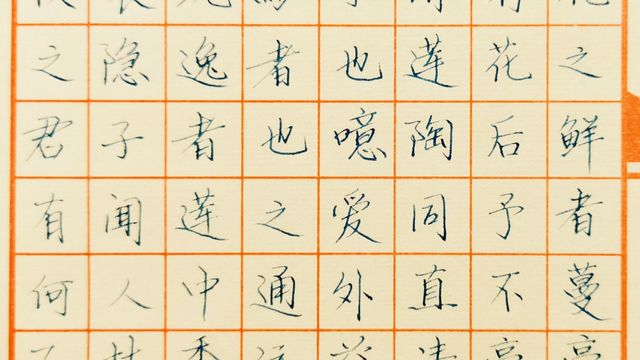 之隐逸者也莲花之
君子者也噫陶后鲜
有闻莲之爱同予者
何人中通外直不蔓